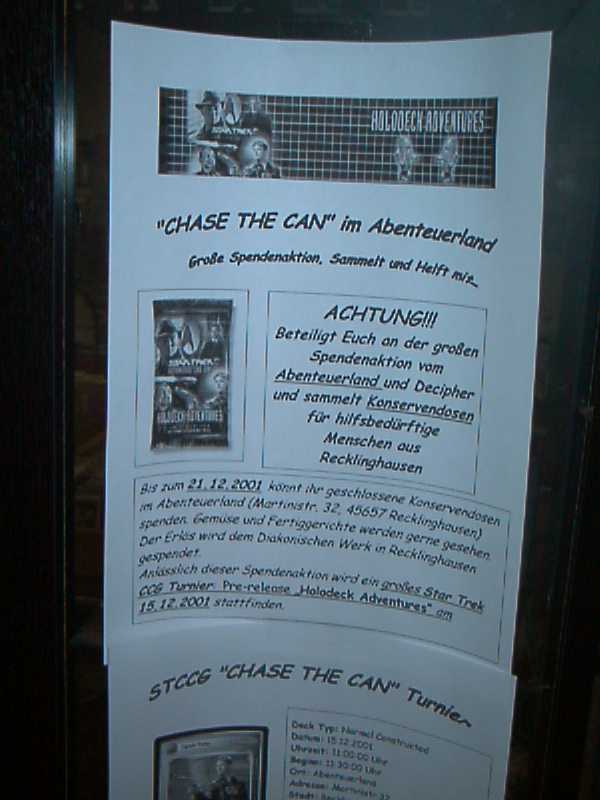 STAR TREK
HOLODECK ADVENTURES
"CHASE THE CAN" im Abenteuerland
Große Spendenaktion. Sammelt und Helft mit...
STAR TREK
HOLODECK ADVENTURES
ACHTUNG!!!
Beteiligt Euch an der großen
Spendenaktion vom
Abenteuerland und Decipher
und sammelt Konservendosen
für hilfsbedürftige
Menschen aus
Recklinghausen
Bis zum 21.12.2001 könnt ihr geschlossene Konservendosen
im Abenteuerland (Martinistr. 32, 45657 Recklinghausen)
spenden. Gemüse und Fertiggerichte werden gerne gesehen.
Der Erlös wird dem Diakonischen Werk in Recklinghausen
gespendet.
Anlässlich dieser Spendenaktion wird ein großes Star Trek
CCG Turnier: Pre-release „Holodeck Adventures" am
15.12.2001 stattfinden.
STCCG "CHASE THE CAN" Turnier
Deck Typ: Normal Constructed
Datum: 15.12.2001
Uhrzeit: 11:00:00 Uhr
Beginn: 11:30:00 Uhr
Ort: Abenteuerland
Adresse: Martinistr. 32
Stadt: